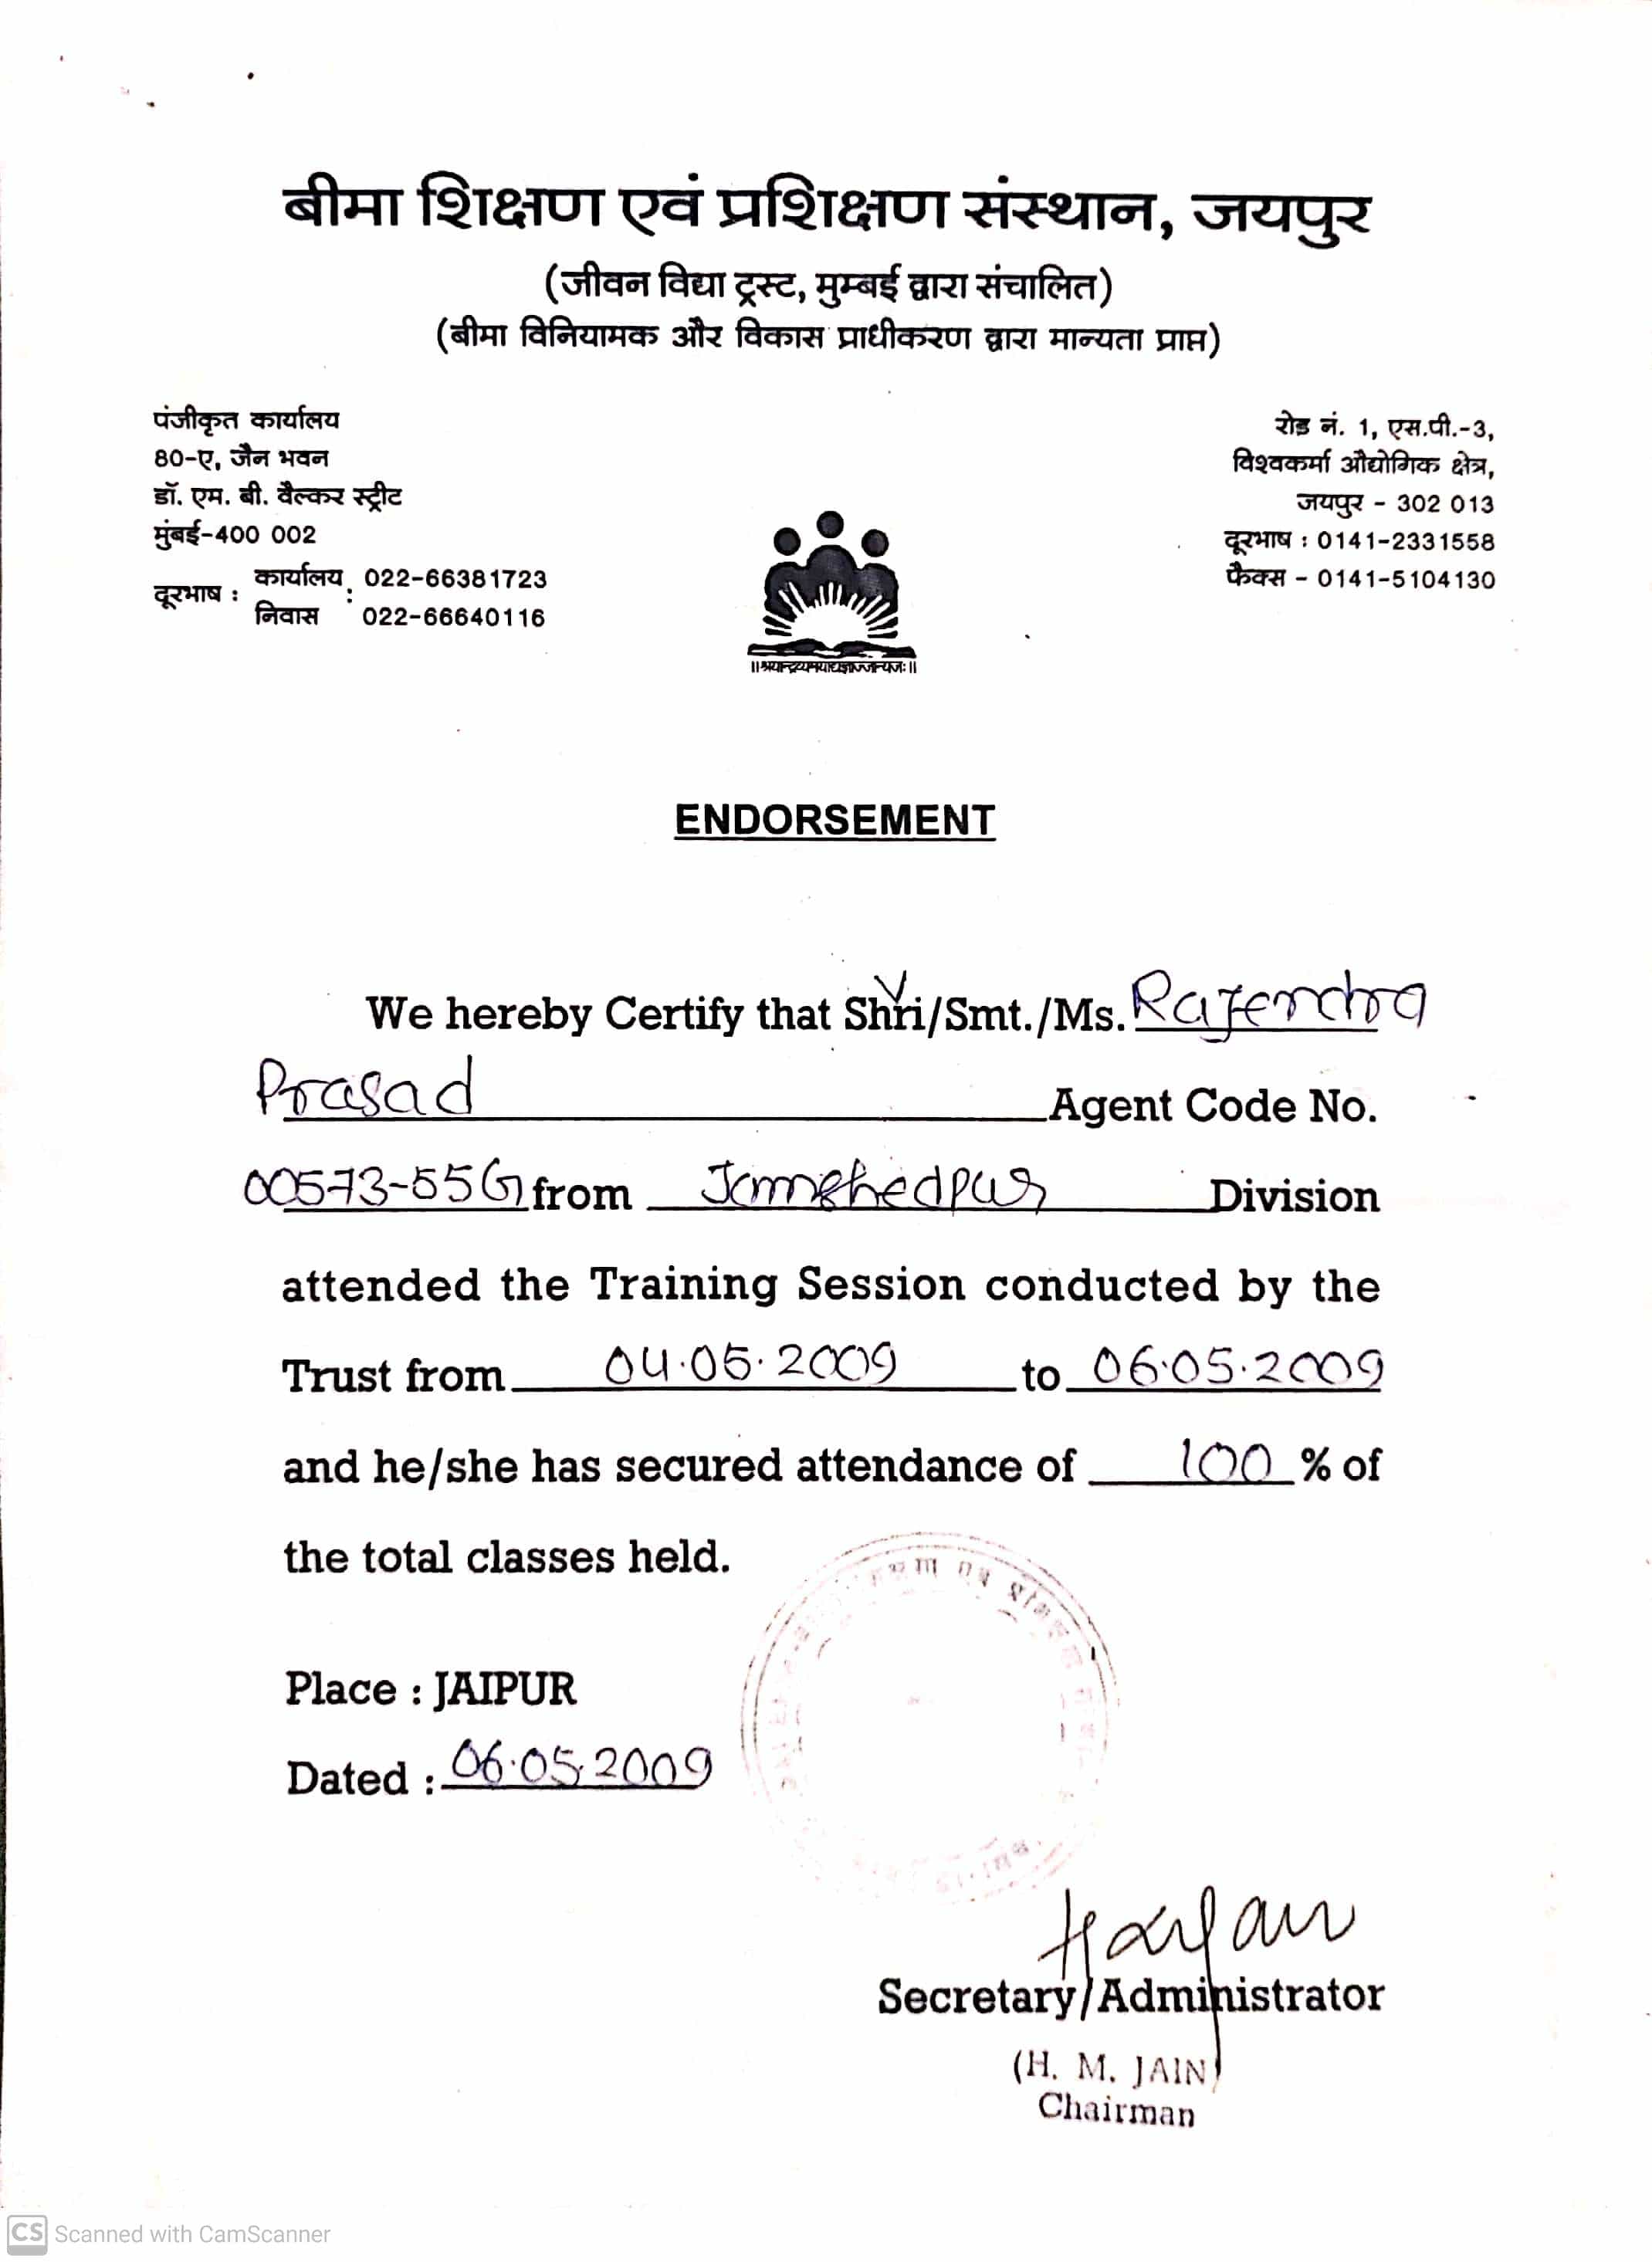 बीमा शिक्षण एवं प्रशिक्षण संस्थान, जयपुर
(जीवन विद्या ट्रस्ट, मुम्बई द्वारा संचालित)
(बीमा विनियामक और विकास प्राधीकरण द्वारा मान्यता प्राप्त)
पंजीकृत कार्यालय
80-ए, जैन भवन
डॉ. एम. बी. वैल्कर स्ट्रीट
मुंबई-400 002
दूरभाष : कार्यालय : 022-66381723
निवास 022-66640116
रोड नं. 1, एस.पी.-3,
विश्वकर्मा औद्योगिक क्षेत्र,
जयपुर - 302 013
दूरभाष : 0141-2331558
फैक्स - 0141-5104130
ENDORSEMENT
We hereby Certify that Shri/Smt./Ms. Rajendra
Prasad Agent Code No.
00573-55G from Jamshedpur Division
attended the Training Session conducted by the
Trust from 04.05.2009 to 06.05.2009
and he/she has secured attendance of 100 % of
the total classes held.
Place : JAIPUR
Dated : 06.05.2009
Secretary/Administrator
(H. M. JAIN)
Chairman
CS Scanned with CamScanner